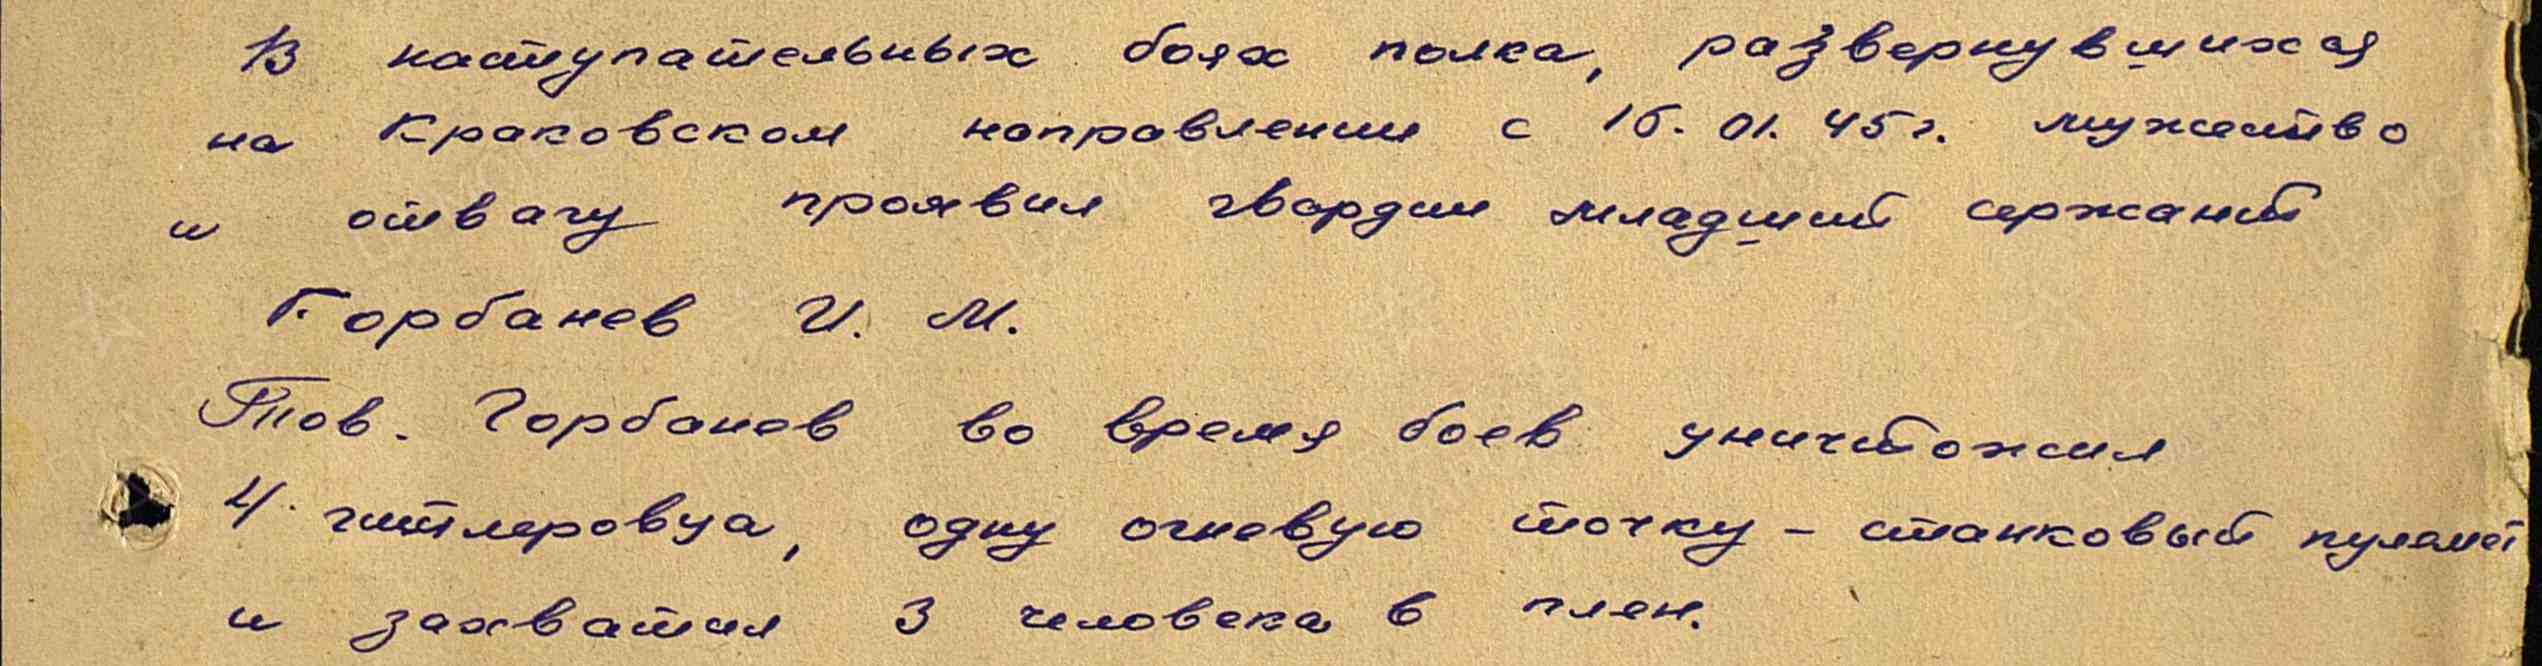 В наступательных боях полка, развернувшихся
на Краковском направлении с 15.01.45г. мужество
и отвагу проявил гвардии младший сержант
Горбанев И. М.
Тов. Горбанев во время боев уничтожил
4 гитлеровца, одну огневую точку - станковый пулемет
и захватил 3 человека в плен.